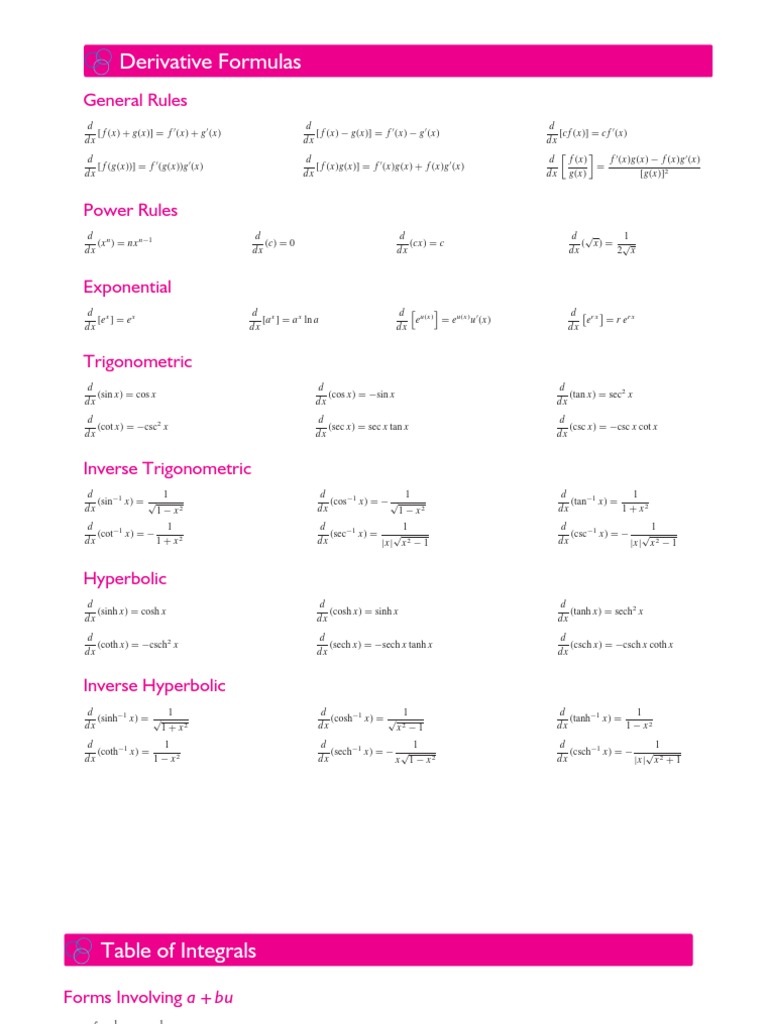 Derivative Formulas
General Rules
d/dx [f(x) + g(x)] = f′(x) + g′(x)    d/dx [f(x) − g(x)] = f′(x) − g′(x)    d/dx [cf(x)] = cf′(x)
d/dx [f(g(x))] = f′(g(x))g′(x)    d/dx [f(x)g(x)] = f′(x)g(x) + f(x)g′(x)    d/dx [f(x)/g(x)] = (f′(x)g(x) − f(x)g′(x))/[g(x)]²
Power Rules
d/dx (xⁿ) = nxⁿ⁻¹    d/dx (c) = 0    d/dx (cx) = c    d/dx (√x) = 1/(2√x)
Exponential
d/dx [eˣ] = eˣ    d/dx [aˣ] = aˣ ln a    d/dx [e^{u(x)}] = e^{u(x)}u′(x)    d/dx [e^{rx}] = r e^{rx}
Trigonometric
d/dx (sin x) = cos x    d/dx (cos x) = −sin x    d/dx (tan x) = sec² x
d/dx (cot x) = −csc² x    d/dx (sec x) = sec x tan x    d/dx (csc x) = −csc x cot x
Inverse Trigonometric
d/dx (sin⁻¹ x) = 1/√(1 − x²)    d/dx (cos⁻¹ x) = −1/√(1 − x²)    d/dx (tan⁻¹ x) = 1/(1 + x²)
d/dx (cot⁻¹ x) = −1/(1 + x²)    d/dx (sec⁻¹ x) = 1/(|x|√(x² − 1))    d/dx (csc⁻¹ x) = −1/(|x|√(x² − 1))
Hyperbolic
d/dx (sinh x) = cosh x    d/dx (cosh x) = sinh x    d/dx (tanh x) = sech² x
d/dx (coth x) = −csch² x    d/dx (sech x) = −sech x tanh x    d/dx (csch x) = −csch x coth x
Inverse Hyperbolic
d/dx (sinh⁻¹ x) = 1/√(1 + x²)    d/dx (cosh⁻¹ x) = 1/√(x² − 1)    d/dx (tanh⁻¹ x) = 1/(1 − x²)
d/dx (coth⁻¹ x) = 1/(1 − x²)    d/dx (sech⁻¹ x) = −1/(x√(1 − x²))    d/dx (csch⁻¹ x) = −1/(|x|√(x² + 1))
Table of Integrals
Forms Involving a + bu